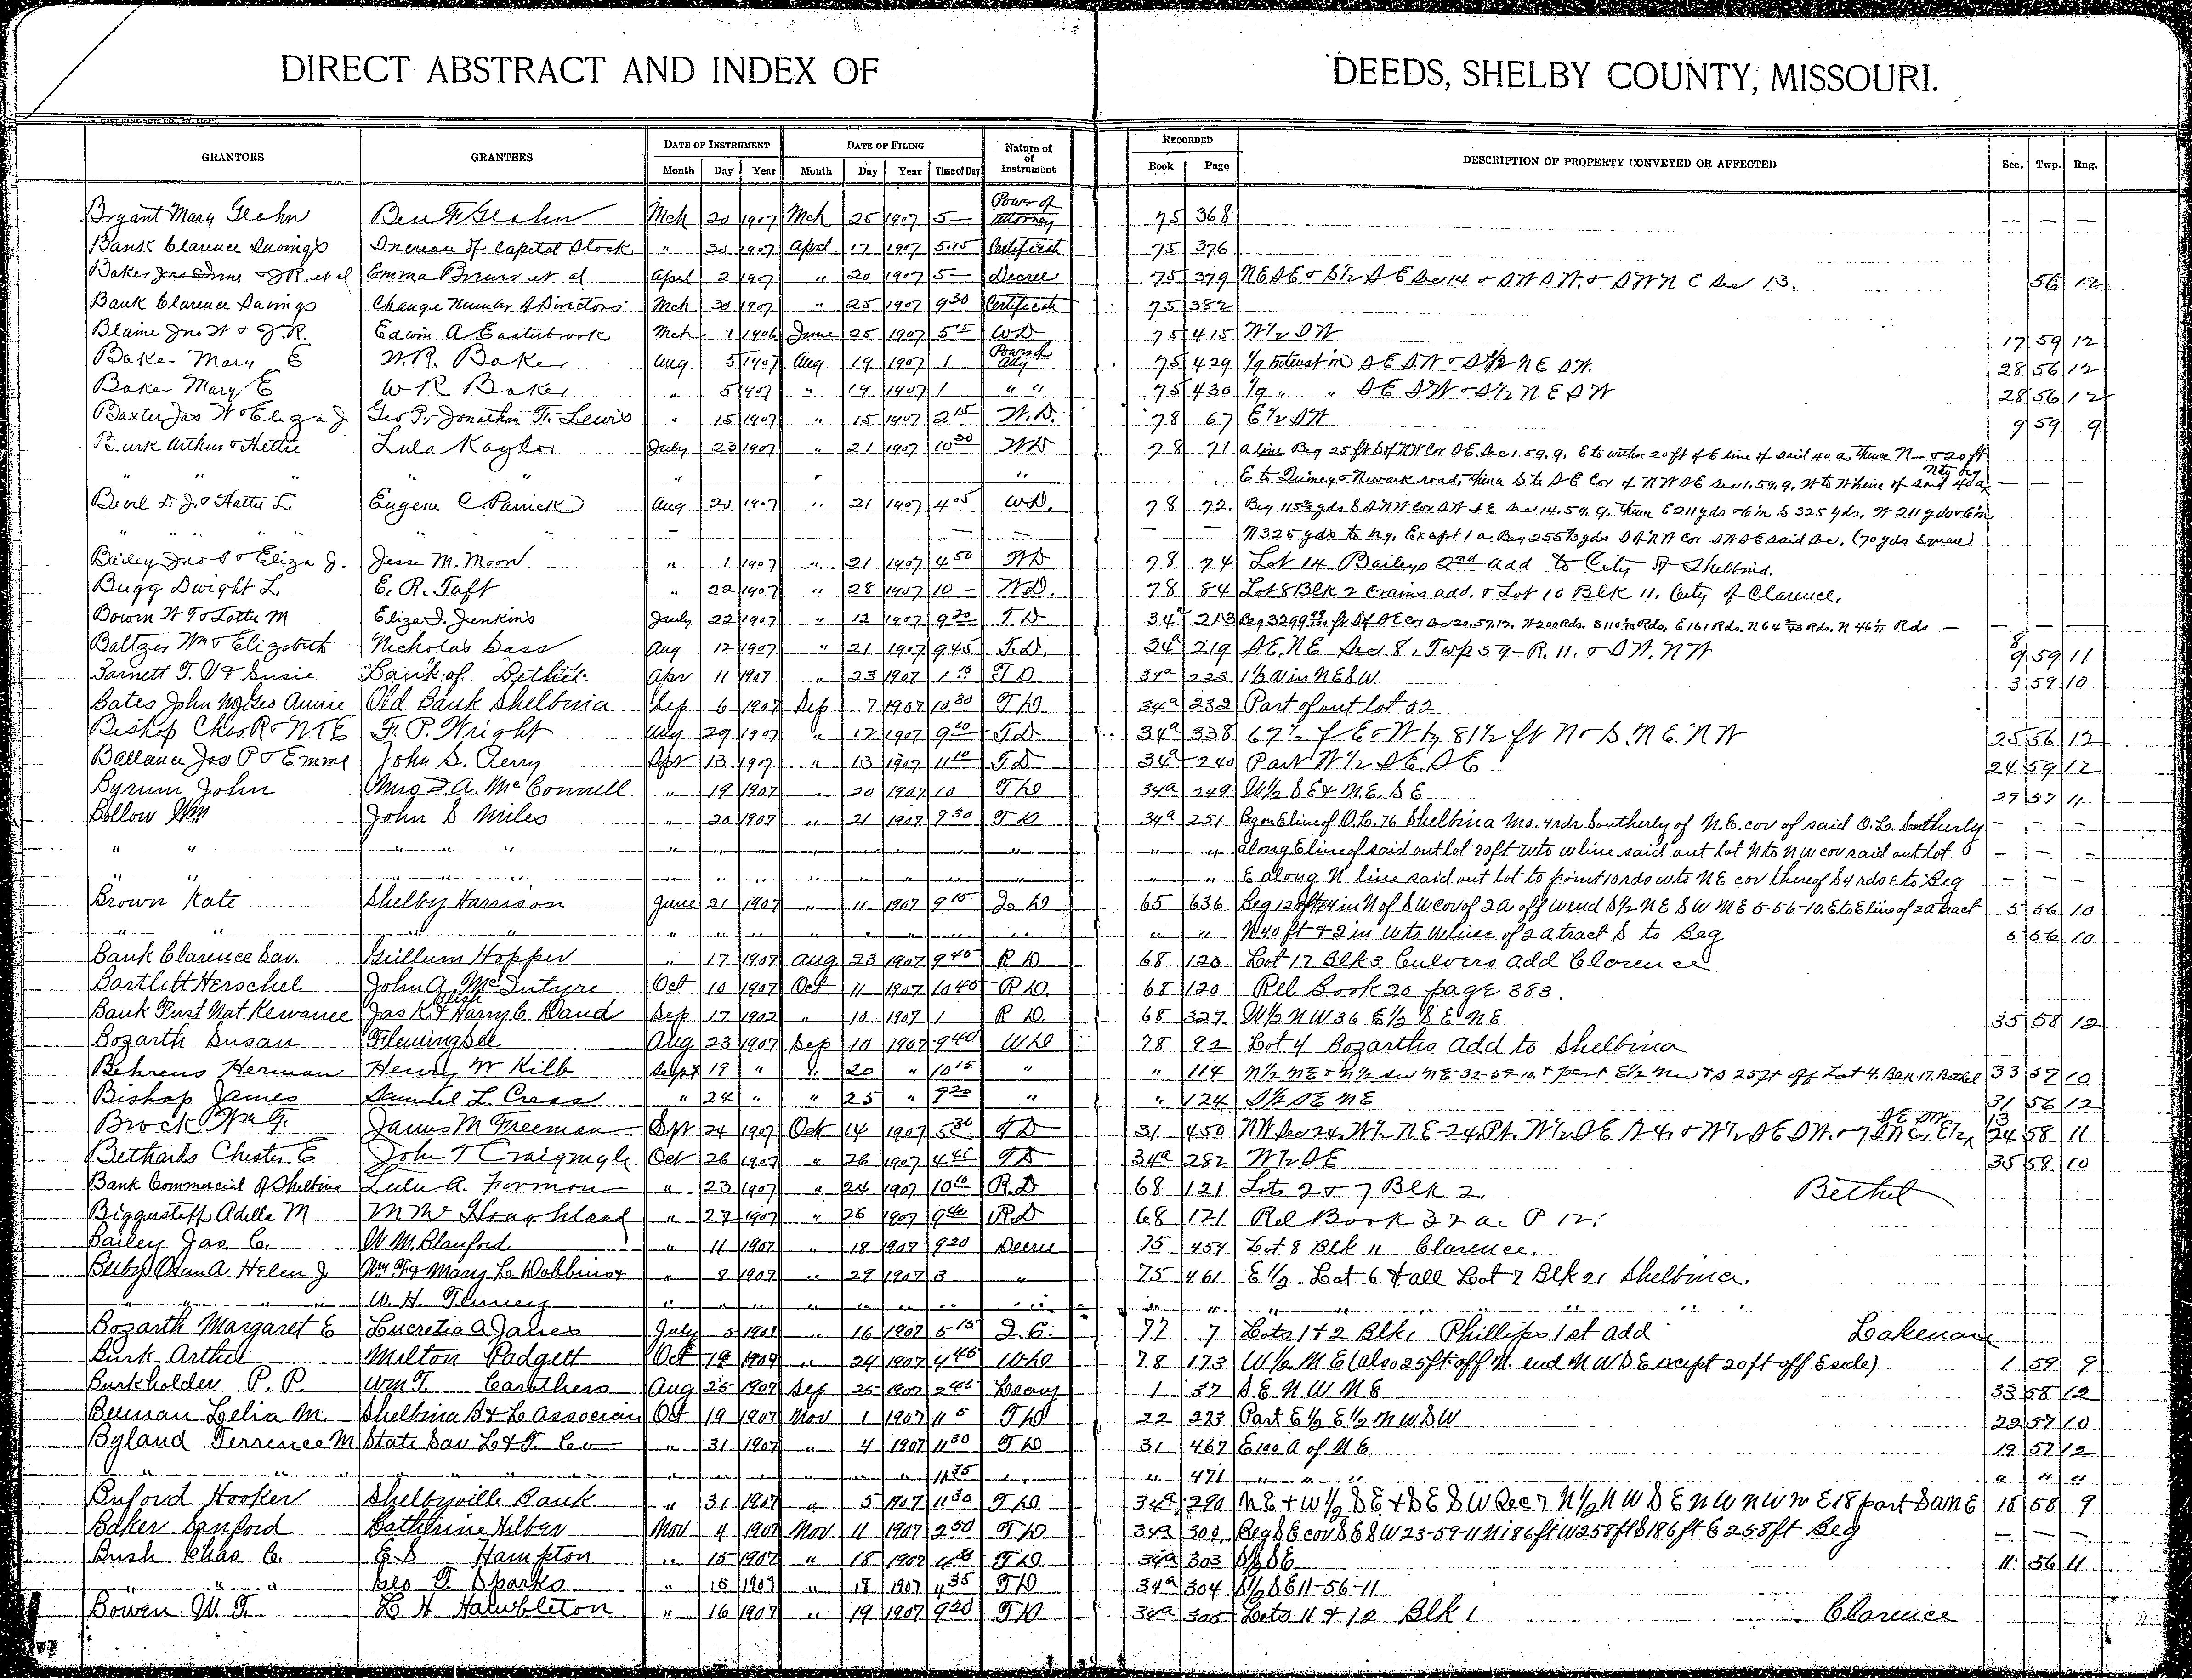 DIRECT ABSTRACT AND INDEX OF DEEDS, SHELBY COUNTY, MISSOURI.
GRANTORS GRANTEES DATE OF INSTRUMENT DATE OF FILING Nature of Instrument RECORDED DESCRIPTION OF PROPERTY CONVEYED OR AFFECTED Sec. Twp. Rng.
Month Day Year Month Day Year Time of Day Book Page
Bryant Mary Glahn Ben F Glahn Mch 20 1907 Mch 25 1907 5 — Power of Attorney 75 368 — — —
Bank Clarence Savings Increase of Capital Stock " 30 1907 April 17 1907 5 15 Certificate 75 376
Baker & J.R. et al Emma et al April 2 1907 " 20 1907 5 — Decree 75 379 NE SE & S½ SE Sec 14 & SW SW & SW N E Sec 13. 56 12
Bank Clarence Savings Change Number of Directors Mch 30 1907 " 25 1907 9 30 Certificate 75 382
Blaine Jno W & J.R. Edwin A Easterbrook Mch 1 1906 June 25 1907 5 15 WD 75 415 W½ SW 17 59 12
Baker Mary E W.R. Baker Aug 5 1907 Aug 19 1907 1 Power of Atty 75 429 1/9 Interest in SE SW & S½ NE SW. 28 56 12
Baker Mary E W R Baker " 5 1907 " 19 1907 1 " " 75 430 1/9 " " SE SW & S½ NE SW 28 56 12
Baxter Jas W & Eliza J Geo P & Jonathan F. Lewis " 15 1907 " 15 1907 2 15 W.D. 78 67 E½ SW 9 59 9
Burk Arthur & Hettie Lula Kaylor July 23 1907 " 21 1907 10 30 WD 78 71 a line Beg 25 ft S of NW Cor SE. Sec 1. 59. 9. E to within 20 ft of E line of said 40 a, thence N — & 20 ft — — —
" " " " " " E to Quincy & Newark road, thence S to SE Cor of NW SE Sec 1. 59. 9. W to W line of said 40 a, N to Bg — — —
Bevil D. J. & Hattie L. Eugene C. Parrick Aug 20 1907 " 21 1907 4 05 WD. 78 72. Beg 115 yds S of NW Cor SW SE Sec 14. 59. 9. thence E 211 yds & 6 in S 325 yds. W 211 yds & 6 in
" " " " N 325 yds to Bg. Except 1 a Beg 255 yds S of NW Cor SW SE said Sec. (70 yds Square)
Bailey Jno S & Eliza J. Jesse M. Moon " 1 1907 " 21 1907 4 50 WD 78 74 Lot 14 Baileys 2nd add to City of Shelbina.
Bugg Dwight L. E. R. Taft " 22 1907 " 28 1907 10 — WD. 78 84 Lot 8 Blk 2 Crains add. & Lot 10 Blk 11. City of Clarence.
Bowin W T & Lottie M Eliza J. Jenkins July 22 1907 " 12 1907 9 20 T D 34a 213 Beg 3299 ft S of SE Cor Sec 20. 57. 12. W 200 Rds. S 110 Rds, E 161 Rds. N 64 Rds. N 46 Rds —
Baltzer Wm & Elizabeth Nicholas Sass Aug 12 1907 " 21 1907 9 45 T.D. 34a 219 SE. NE Sec 8. Twp 59 — R. 11. & SW. NW 8 9 59 11
Barnett T. V & Susie Bank of Bethel Apr 11 1907 " 23 1907 1 15 T D 34a 223 1½ a in N E S W 3 59 10
Bates John Moses Annie Old Bank Shelbina Sep 6 1907 Sep 7 1907 10 30 T D 34a 232 Part of out lot 52
Bishop Chas R & N T E F. P. Wright Aug 29 1907 " 12 1907 9 20 T D 34a 338 67½ f E & W by 81½ ft N & S. N E. N W 25 56 12
Ballance Jas P & Emma John S. Perry Apr 13 1907 " 13 1907 11 10 T D 34a 240 Part W½ SE. SE 24 59 12
Byrum John Mrs F. A. McConnell " 19 1907 " 20 1907 10 T D 34a 249 W½ S E & N. E. S E 29 57 11
Bollow Wm John S Miles " 20 1907 " 21 1907 9 30 T D 34a 251 Beg on E line of O. L. 76 Shelbina Mo. 4 rds Southerly of N. E. cor of said O. L. Southerly — — —
" " " " " " along E line of said out lot 70 ft W to W line said out lot N to N W cor said out lot — — —
" " " " " " E along N line said out lot to point 10 rds W to N E cor thereof S 4 rds E to Beg — — —
Brown Kate Shelby Harrison June 21 1907 " 11 1907 9 15 65 636 Beg 120 ft 4 in N of S W cor of 2 a off W end S½ N E S W N E 5-56-10. E to E line of 2 a tract 5 56 10
" " " " " " N 40 ft & 2 in W to W line of 2 a tract S to Beg 5 56 10
Bank Clarence Sav. Gillum Hopper " 17 1907 Aug 23 1907 9 45 R D 68 120 Lot 17 Blk 3 Culvers add Clarence
Bartlett Herschel John A McIntyre Oct 10 1907 Oct 11 1907 10 45 R D. 68 120 Rel Book 20 page 383.
Bank First Nat Kewanee Jas K & Harry C Blish Daud Sep 17 1902 " 10 1907 1 R D. 68 327 W½ N W 36 E½ S E N E 35 58 12
Bozarth Susan Fleming Aug 23 1907 Sep 10 1907 9 40 W D 78 92 Lot 4 Bozarths Add to Shelbina
Behrens Herman Henry W Kilb Sept 19 " " 20 " 10 15 " " 114 N½ NE & N½ SW NE 32-59-10. & part E½ NW & S 25 ft off Lot 4. Blk 17. Bethel 33 59 10
Bishop James Samuel L. Cress " 24 " " 25 " 9 20 " " 124 S½ SE NE 31 56 12
Brock Wm G. James M Freeman Spt 24 1907 Oct 14 1907 5 30 T D 31 450 NW Sec 24. W½ NE-24. Pt. W½ SE 24. & W½ SE SW. 13 24 58 11
Bethards Chester E John T Craigmyle Oct 26 1907 " 26 1907 4 45 T D 34a 282 W½ SE 35 58 10
Bank Commercial of Shelbina Lulu A. Formon " 23 1907 " 24 1907 10 10 R.D 68 121 Lots 2 & 7 Blk 2. Bethel
Biggerstaff Adella M M M Houghland " 27 1907 " 26 1907 9 40 R.D 68 121 Rel Book 32 a. P 12.
Bailey Jas. C. W M Blanford " 11 1907 " 18 1907 9 20 Decree 75 454 Lot 8 Blk 11 Clarence.
Helen J Wm F & Mary L Dobbins & " 8 1907 " 29 1907 3 " 75 461 E½ Lot 6 & all Lot 7 Blk 21 Shelbina.
" " " W. H. Tenney " " " " " " " " "
Bozarth Margaret E Lucretia A Janes July 5 1901 " 16 1907 5 15 Q. C. 77 7 Lots 1 & 2 Blk 1 Phillips 1st add Lakenan
Burk Arthur Milton Padgett Oct 19 1907 " 24 1907 4 45 W D 78 173 W½ N E (also 25 ft off N. end N W S E except 20 ft off E side) 1 59 9
Burkholder P. P. Wm T. Carothers Aug 25 1907 Sep 25 1907 2 45 1 37 S E N W N E 33 58 12
Beeman Lelia M. Shelbina B & L Associan Oct 19 1907 Nov 1 1907 11 5 T D 22 223 Part E½ E½ N W S W 22 57 10
Byland Terrence M State Sav L & T Co " 31 1907 " 4 1907 11 30 T D 31 467 E 100 A of N E 19 57 12
" " " " " " " " 11 35 " " 471 " " " " "
Buford Hooker Shelbyville Bank " 31 1907 " 5 1907 11 30 T D 34a 290 N E & W½ S E & S E S W Sec 7 N½ N W S E N W N W N E 18 part Sam E 18 58 9
Baker Sanford Catherine Hilber Nov 4 1907 Nov 11 1907 2 50 T D 34a 300 Beg S E cor S E S W 23-59-11 N 186 ft W 258 ft S 186 ft E 258 ft Beg — — —
Bush Chas C. E S Hampton " 15 1907 " 18 1907 T D 34a 303 S½ SE 11 56 11
" " " Geo T. Sparks " 15 1907 " 18 1907 4 35 T D 34a 304 S½ S E 11-56-11
Bowen W. T. L H Hambleton " 16 1907 " 19 1907 9 20 T D 34a 305 Lots 11 & 12 Blk 1 Clarence